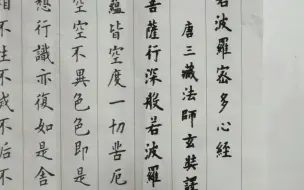 若波羅密多心經
唐三藏法師玄奘譯
菩薩行深般若波羅
蘊皆空度一切苦厄
空空不異色色即是
想行識亦復如是舍
不生不滅不垢不